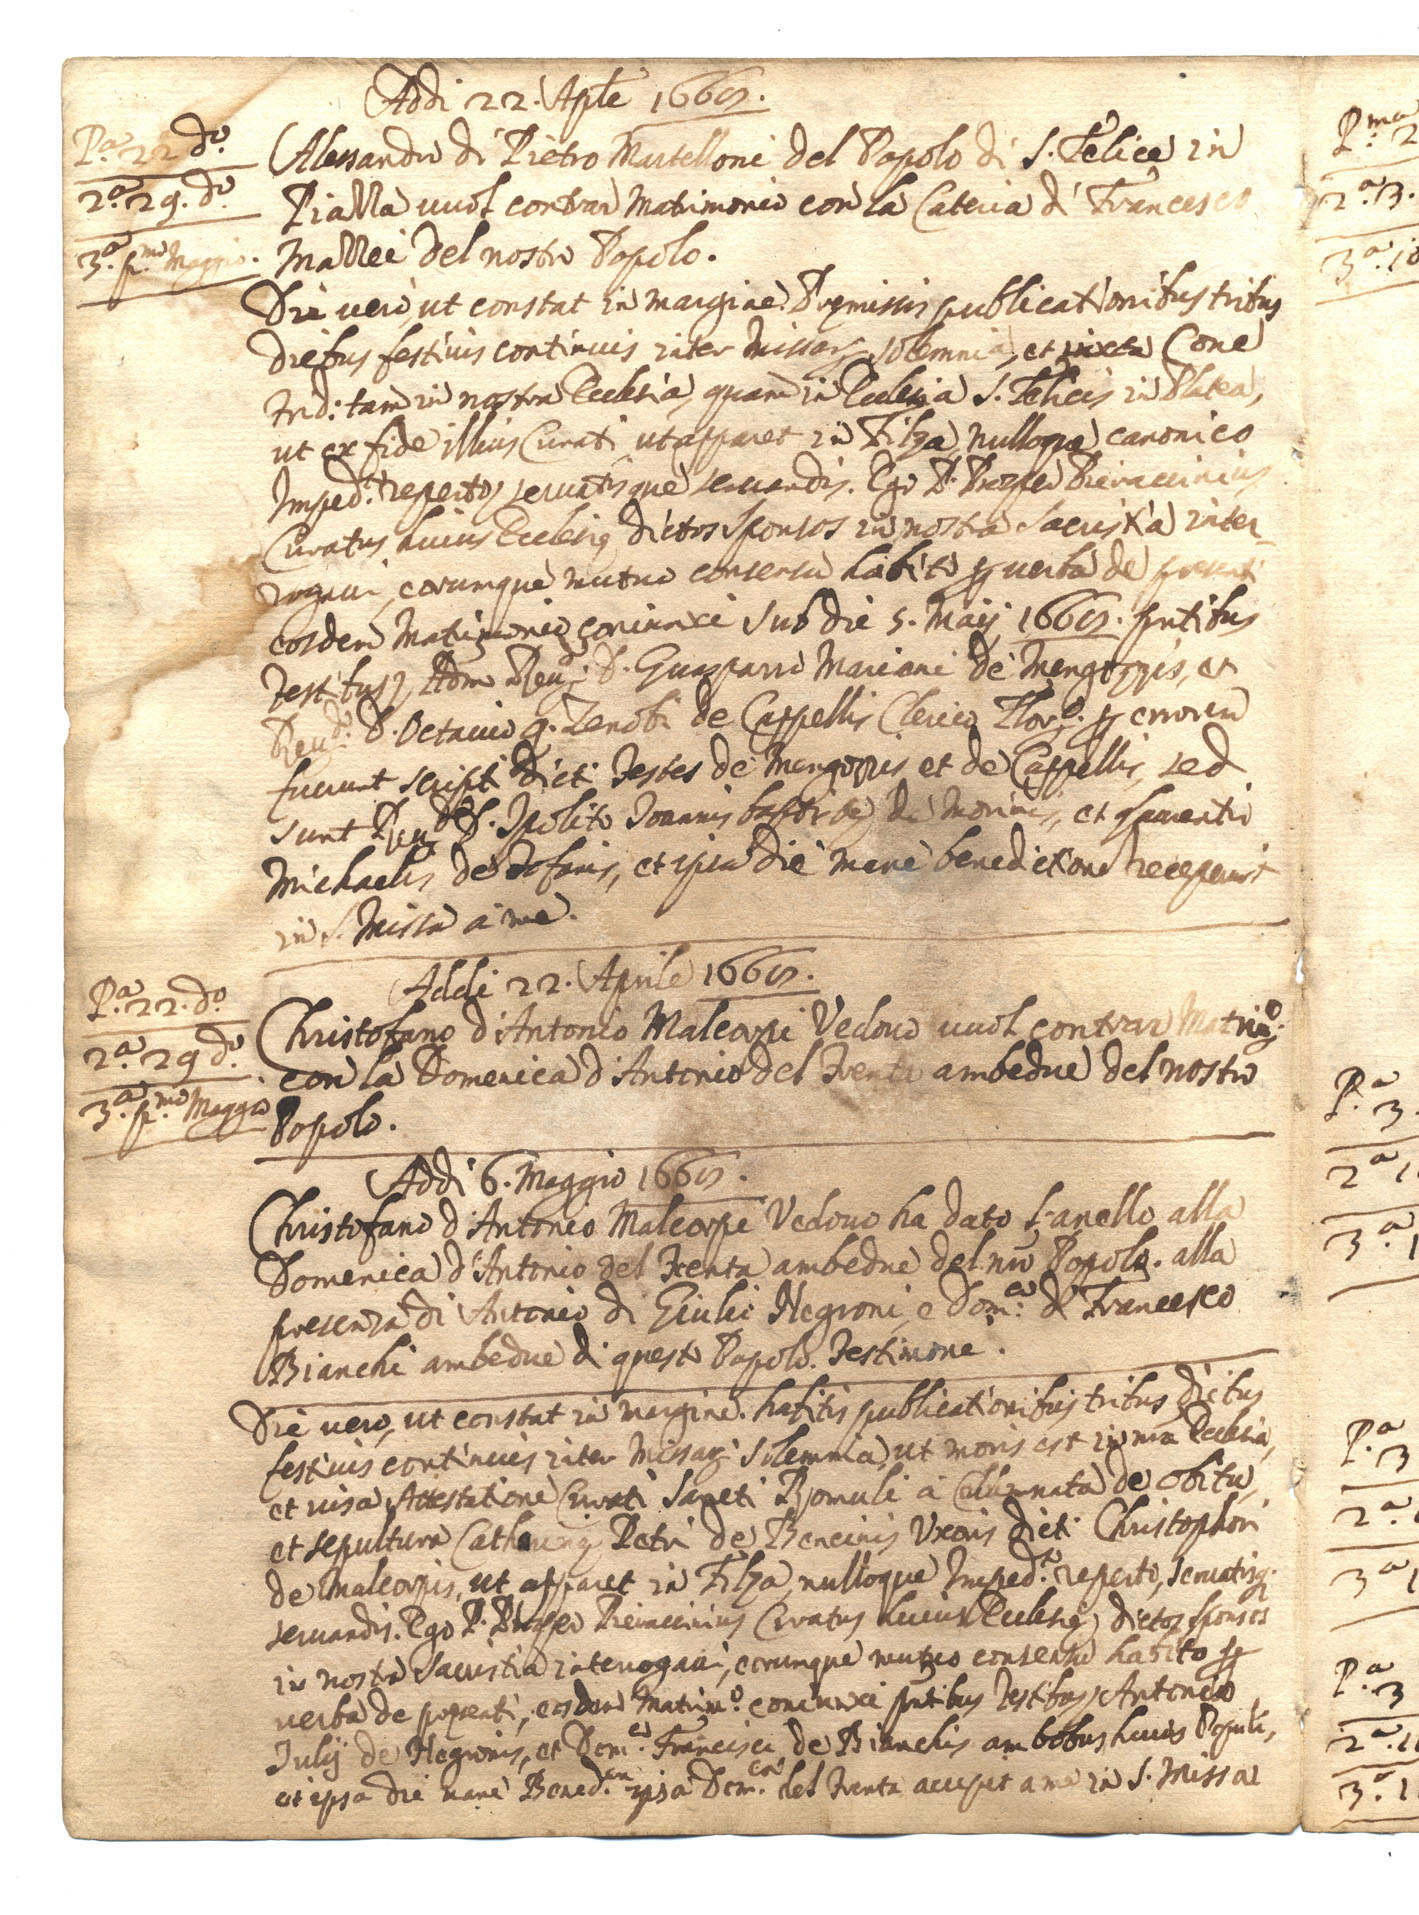 Addi 22. Aple 1660.
P.a 22 do.
2.a 29. do.
3.a p.mo Maggio.
Alessandro di Pietro Martelloni del Popolo di S. Felice in
Piazza vuol contrar Matrimonio con la Cateria di Francesco
Mazzei del nostro Popolo.
Die uero, ut constat in margine. Premissis publicationibus tribus
diebus festiuis continuis inter Missar solemnia, et iuxta Conc
Trid: tam in nostra Ecclesia, quam in Ecclesia S. Felicis in Platea,
ut ex fide illius Curati, ut apparet in Filza, nulloque canonico
Imped.to reperto, seruatisque seruandis. Ego P. Prosper Pieraccinius
Curatus huius Ecclesię dictos sponsos in nostra Sacristia inter-
rogaui, eorumque mutuo consensu habito p uerba de presenti
eosdem Matrimonio coniunxi sub die 5. Maij 1660. pntibus
Testibus, Adm Reu.do D. Guasparri Mariani de Mengozzis, et
Reu.do D. Octauio q. Zenobi de Cappellis Clerico Flor.o p errorem
fuerunt scripti dicti Testes de Mengozzis et de Cappellis, sed
sunt Reu.do D. Ipolito Joannis bastę de Morinis, et
Michaelis de Tofanis, et ipsa die mane benedictione receperunt
in S. Missa a me.
Addi 22. Aprile 1660.
P.a 22. do
2.a 29 do.
3.a p.mo Maggio
Christofano d'Antonio Malcorpi Vedouo uuol contrar Matrim.o
con la Domenica d'Antonio del Trenta ambedue del nostro
Popolo.
Addi 6. Maggio 1660.
Christofano d'Antonio Malcorpi Vedouo ha dato l'anello alla
Domenica d'Antonio del Trenta ambedue del nro Popolo. alla
presenza di Antonio di Giulio Negroni, e Dom.co di Francesco
Bianchi ambedue di questo Popolo. Testimone.
Die uero, ut constat in margine. habitis publicationibus tribus diebus
festiuis continuis inter Missar solemnia, ut moris est in nra Ecclesia,
et uisa Attestatione Curati Sancti Romuli a Collonnata de obitu,
et sepultura Catherinę Petri de Bencinis Uxoris dicti Christophori
de Malcorpis, ut apparet in Filza, nulloque Imped.to reperto, seruatisq.
seruandis. Ego P. Prosper Pieraccinius Curatus huius Ecclesię dictos sponsos
in nostra Sacristia interrogaui, eorumque mutuo consensu habito p
uerba de presenti, eosdem Matrim.o coniunxi pntibus Testibus, Antonio
Iulij de Negronis, et Dom.co Francisci de Bianchis ambobus huius Populi,
et ipsa die mane Bened.em ipsa Dom.ca del Trenta accepit a me in S. Missa
P.ma 2
2.a 13.
3.a 10
P.a 3.
2.a 1
3.a 1
P.a 3
2.a
3.a 1
P.a 3
2.a 1
3.a 1